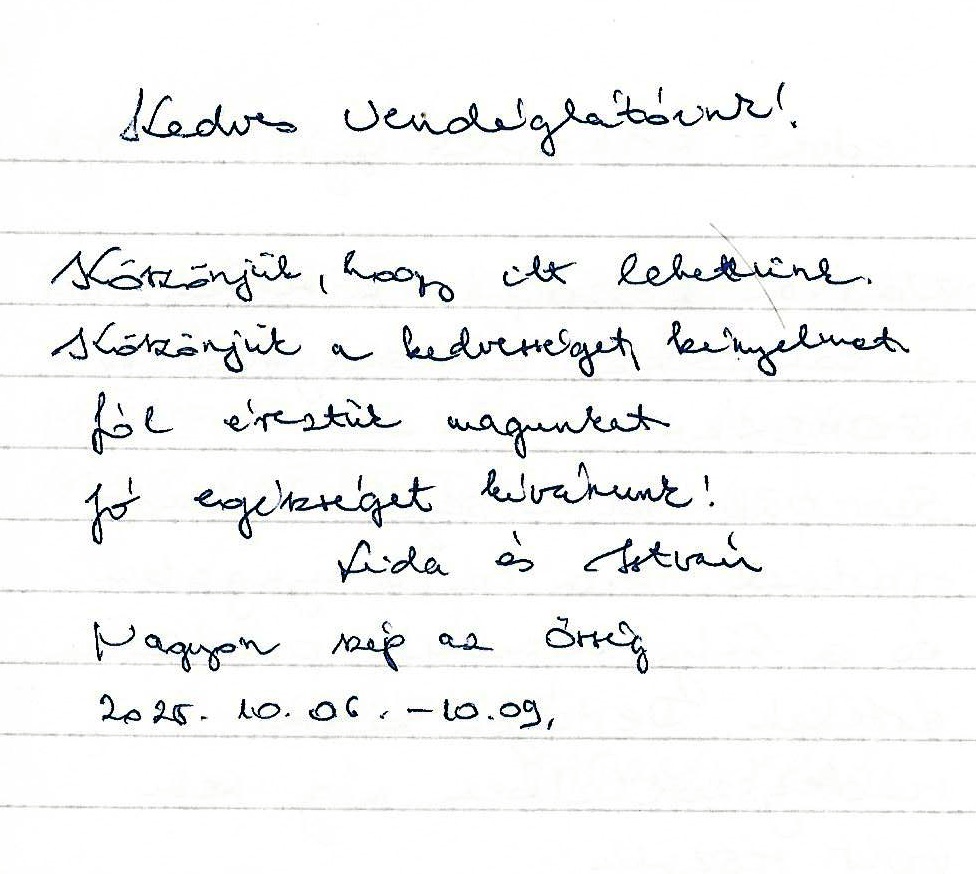 Kedves Vendéglátóunk!
Köszönjük, hogy itt lehettünk.
Köszönjük a kedvességet, kényelmet
jól éreztük magunkat
jó egészséget kívánunk!
Lida és István
Nagyon szép az Őrség
2025. 10. 06. - 10. 09.